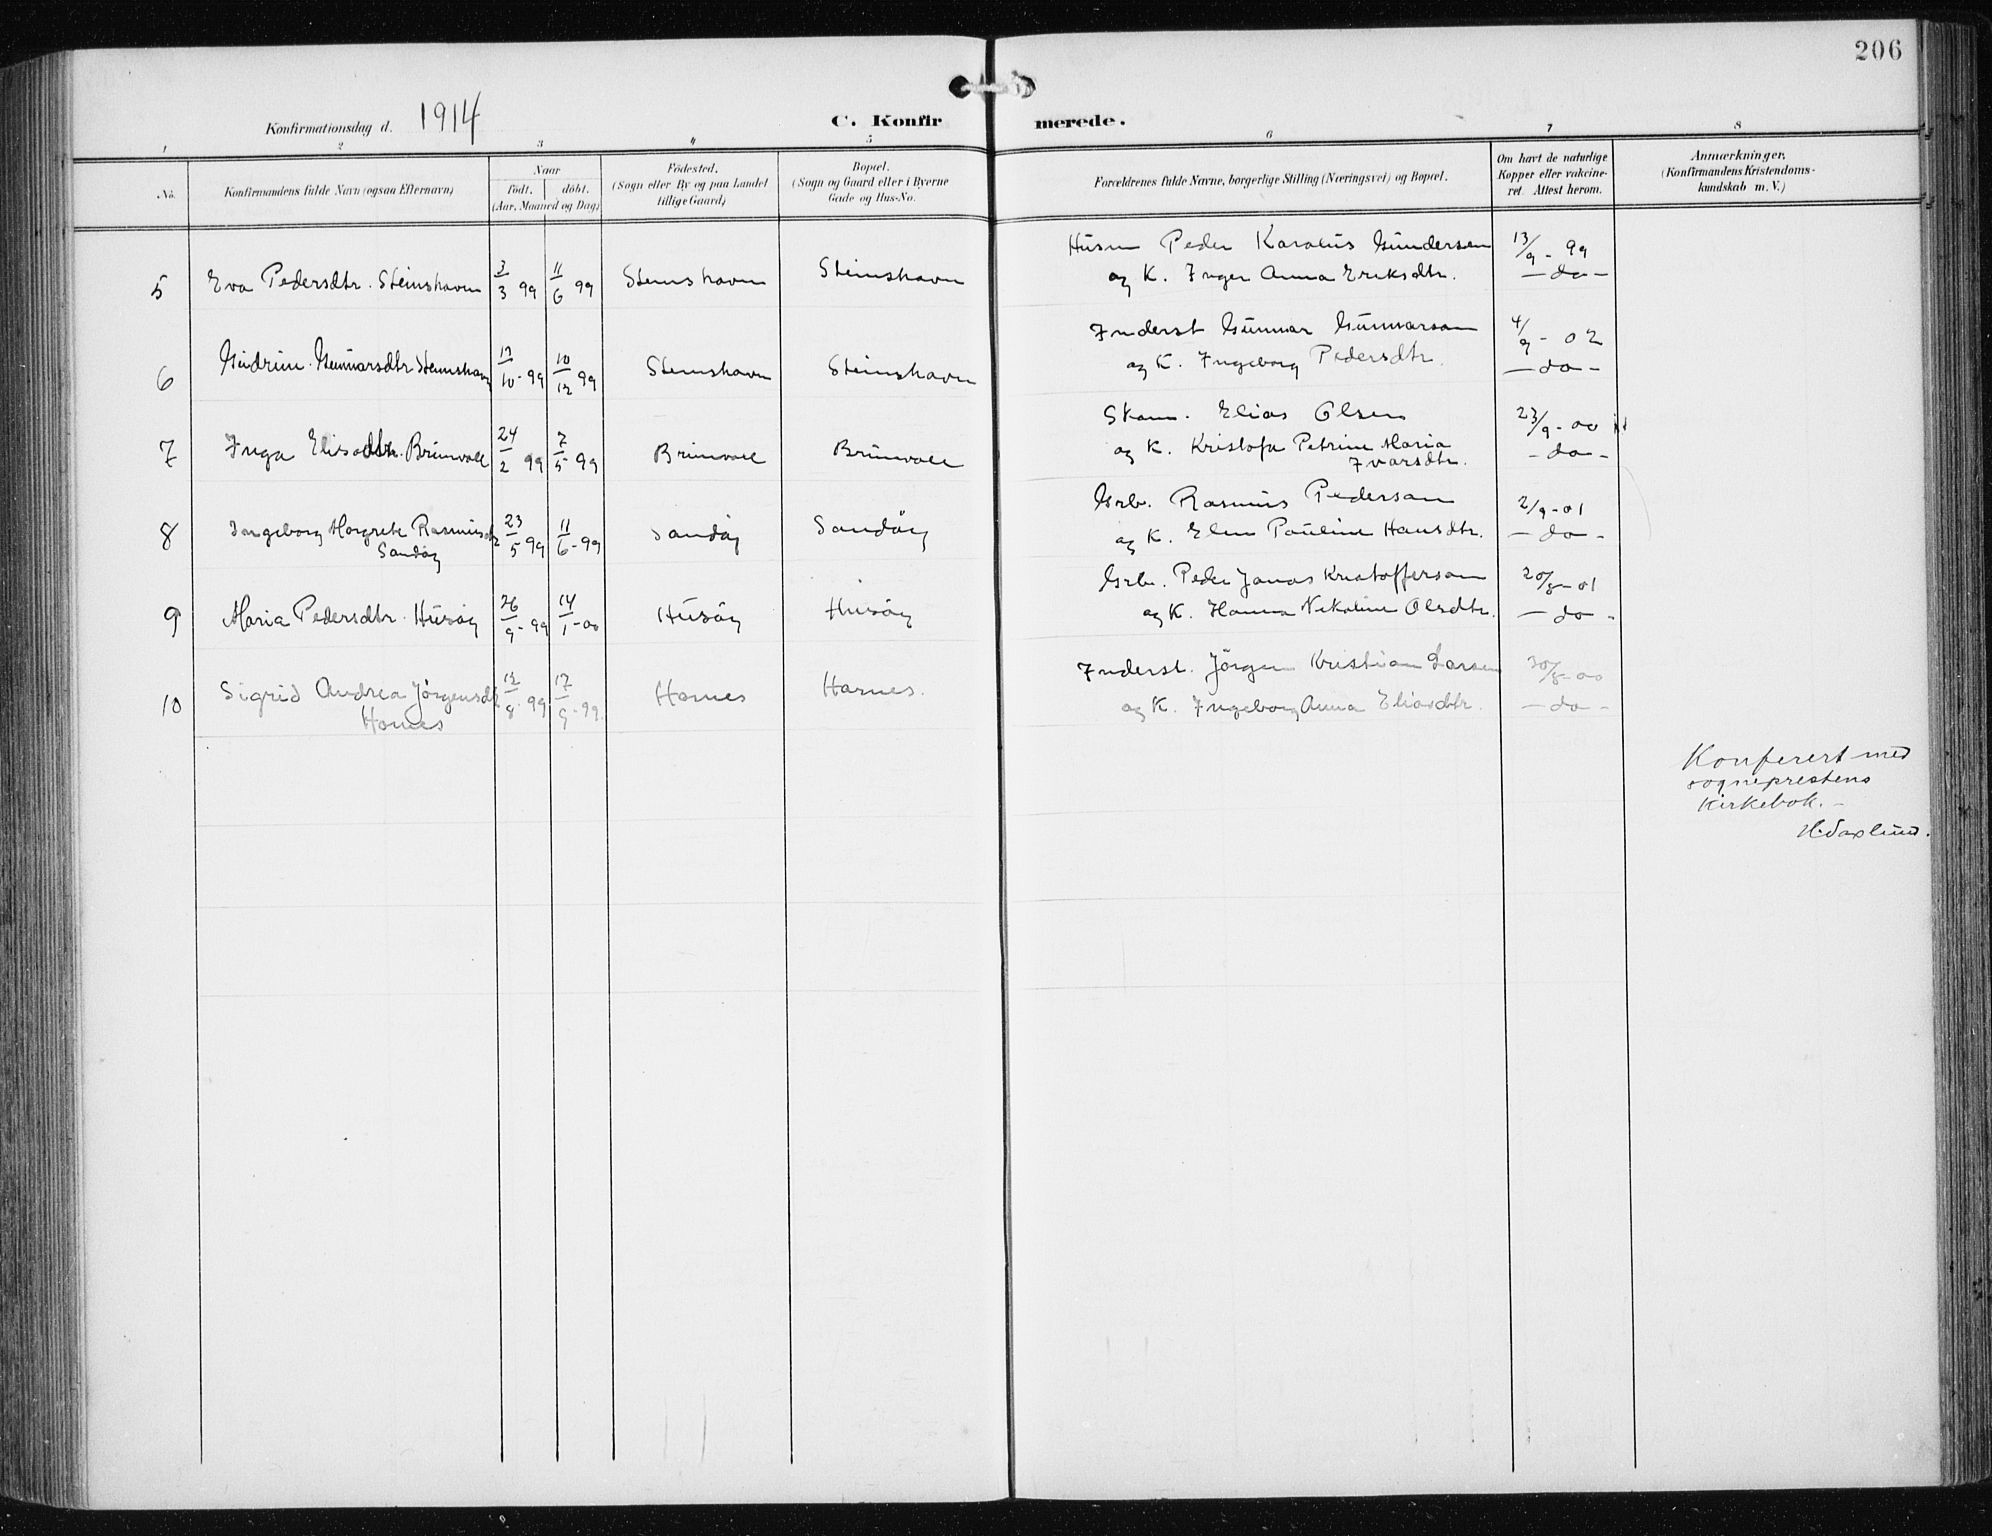 206
Konfirmationsdag d. 1914
C. Konfirmerede.
1 2 3 4 5 6 7 8
No.
Konfirmandens fulde Navn (ogsaa Efternavn)
Naar
født. døbt.
(Aar, Maaned og Dag)
Fødested.
(Sogn eller By og paa Landet
tillige Gaard)
Bopæl.
(Sogn og Gaard eller i Byerne
Gade og Hus-No.
Forældrenes fulde Navne, borgerlige Stilling (Næringsvei) og Bopæl.
Om havt de naturlige
Kopper eller vakcine-
ret. Attest herom.
Anmærkninger.
(Konfirmandens Kristendoms-
kundskab m. V.)
Husm Peder Karolius Gundersen 13/9 - 99
5 Eva Pedersdtr. Steinshavn 3/3 99 11/6 99 Steinshavn Steinshavn og K. Inger Anna Eriksdtr. - do -
Inderst Gunnar Gunnarson 4/9 - 02
6 Gudrun Gunnarsdtr Steinshavn 10-99 10/12 99 Steinshavn Steinshavn og K. Ingeborg Pedersdtr. - do -
Skom. Elias Olsen 23/9 - 00
7 Inga Eliasdtr. Brunvoll 24/2 99 7/5 99 Brunvoll Brunvoll og K. Kristofa Petrine Maria - do -
Ivarsdtr.
Grb. Rasmus Pederson 2/9 - 01
8 Ingeborg Margrete Rasmusdtr 23/5 99 11/6 - 99 Sandöy Sandöy og K. Elen Pauline Hansdtr. - do -
Sandöy
Grb. Peder Jonas Kristofferson 20/8 - 01
9 Maria Pedersdtr. Husöy 26/9 - 99 14/1 - 00 Husöy Husöy og K. Hanna Nikoline Olsdtr. - do -
Inderst. Jörgen Kristian Larsen 30/8 - 00
10 Sigrid Andrea Jörgensdtr 12/8 - 99 17/9 - 99. Harnes Harnes. og K. Ingeborg Anna Eliasdtr. - do -
Harnes
Konferert med
sogneprestens
kirkebok. -
H. Saxlund.